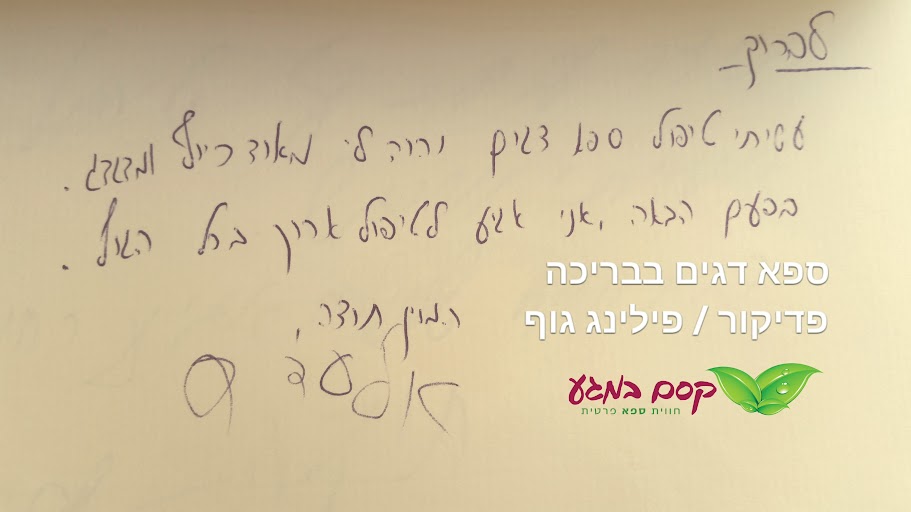 לברוך
עשיתי טיפול ספא דגים והיה לי מאוד כיף ומדגדג.
בפעם הבאה, אני אגיע לטיפול ארוך בכל הגוף.
המון תודה,
אלעד
ספא דגים בבריכה
פדיקור / פילינג גוף
קסם במגע
חווית ספא פרטית